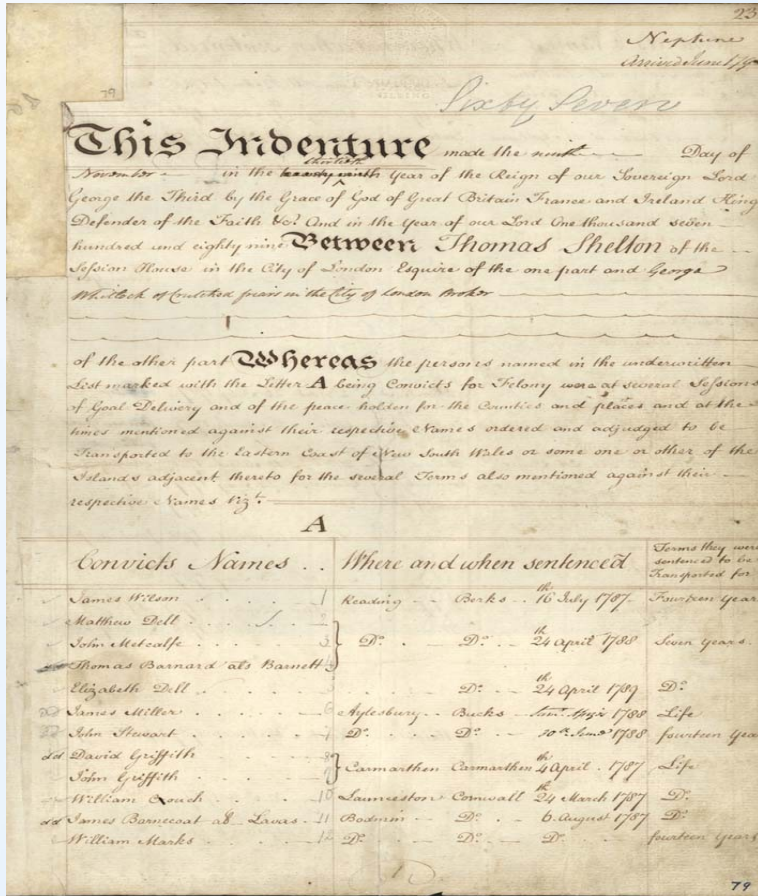 23
Neptune
arrived June
79
Sixty Seven
This Indenture made the ninth Day of
thirtieth
November in the twenty ninth Year of the Reign of our Sovereign Lord
George the Third by the Grace of God of Great Britain France and Ireland King
Defender of the Faith &c. And in the Year of our Lord One thousand seven
hundred and eighty nine Between Thomas Shelton of the
Session House in the City of London Esquire of the one part and George
Whitlock of Crutched friars in the City of London Broker
of the other part Whereas the persons named in the underwritten
List marked with the Letter A being Convicts for Felony were at several Sessions
of Goal Delivery and of the peace holden for the Counties and places and at the
times mentioned against their respective Names ordered and adjudged to be
Transported to the Eastern Coast of New South Wales or some one or other of the
Islands adjacent thereto for the several Terms also mentioned against their
respective Names Vizt.
A
Convicts Names . . Where and when sentenced Terms they were
sentenced to be
Transported for
James Wilson 1 Reading Berks 16th July 1787 Fourteen Year
Matthew Dell 2
John Metcalfe 3 Do. Do. 24th April 1788 Seven Years.
Thomas Barnard als Barnett 4
Elizabeth Dell Do. 24th April 1789 Do.
James Miller 6 Aylesbury Bucks 1788 Life
John Stewart 7 Do. Do. 1788 fourteen Yea
dd David Griffith 8
John Griffith 9 Carmarthen Carmarthen 4th April 1787 Life
William Couch 10 Launceston Cornwall 24th March 1787 Do.
dd James Barnecoat als Lavas 11 Bodmin Do. 6 August 1787 Do.
William Marks 12 Do. Do. Do. fourteen Years
79